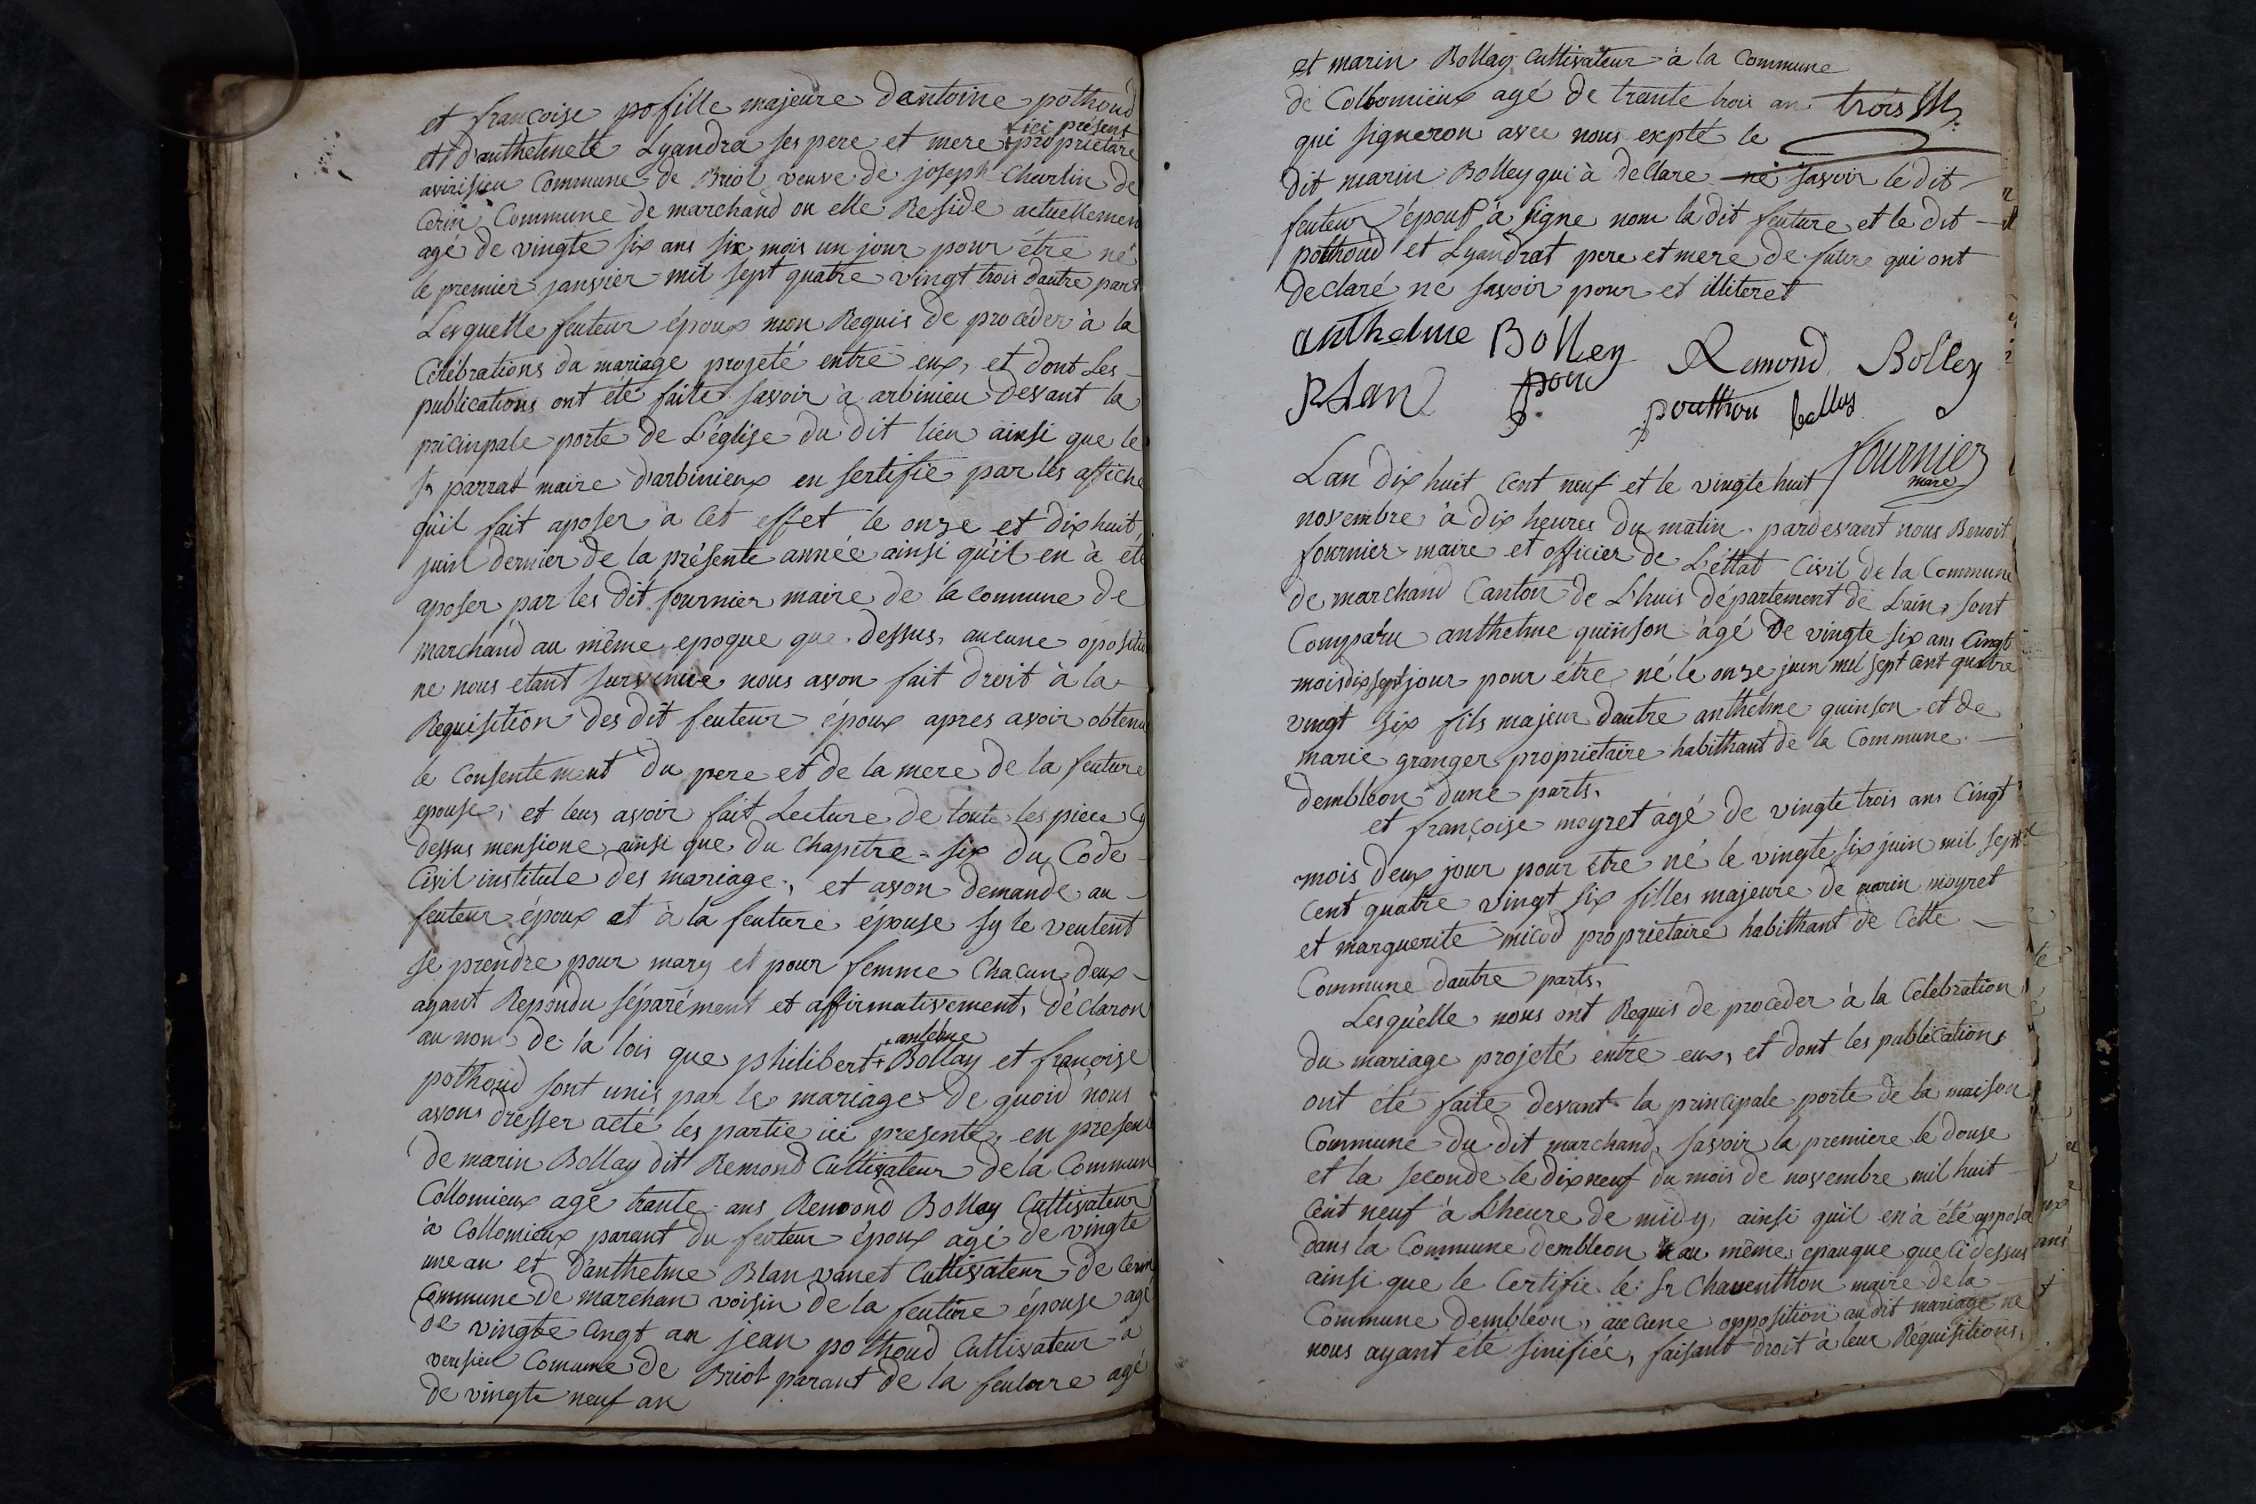 et françoise po fille majeure dantoine pothoud
+ ici présent
et d'anthelmete Lyandra ses pere et mere + propriétare
avirisieu Commune de Briot veuve de joseph Charlin de
Cerin Commune de marchand ou elle Reside actuellemen
agé de vingte six ans six mois un jour pour étre né
le premier janvier mil sept quatre vingt trois dautre part
Lesquelle feuteur époux mon Requis de procéder à la
Célébrations du mariage projeté entre eux, et dont Les
publications ont été faite savoir à arbinieu devant la
pricinpale porte de L'église du dit lieu ainsi que le
sr parrat maire d'arbinieux en sertifie par les affiche
qu'il fait aposer à cet effet le onze et dix huit
juin dernier de la présente année ainsi qu'il en à été
aposer par les dit fournier maire de la commune de
marchand au même epoque que dessus, aucune opositio
ne nous etant survenue nous avon fait droit à la
Requisition des dit feuteur époux apres avoir obtenu
le Consentement du pere et de la mere de la feuture
epouse, et leur avoir fait Lecture de toute les piece cy
dessus mensione ainsi que du Chapitre six du Code
Civil institule des mariage, et avon demande au
feuteur époux et à la feuture épouse sy le veulent
se prendre pour mary et pour femme Chacun deux
ayant Repondu séparément et affirmativement, déclaron
au nom de la lois que philibert + Bollay et françoise
+ antelme
pothoud sont unis par le mariage de quoid nous
avons dresser acté les partie ici presente, en presen
de marin Bollay dit Remond Cultivateur de la Commun
Collomieux agé trante ans Remond Bollay Cultivateur
à Collomieux parent du feuteur époux agé de vingte
une an et d'anthelme Blan vanet Cultivateur de Cerin
Commune de marchan voisin de la feuture épouse agé
de vingte Cingt an jean pothoud Cultivateur à
verisieu Comune de Briot parant de la feuture agé
de vingte neuf an
et marin Bollay Cultivateur à la Commune
de Collomieux agé de trante trois an trois
qui signeron avec nous expté le
dit marin Bolley qui à declare ne savoir le dit
feuteur époux à signe nom la dit feuture et le dit
pothoud et Lyandrat pere et mere de future qui ont
declaré ne savoir pour et illiteret
anthelme Bolley Remond Bolley
Blan pour pouthou bolley
fournier
maire
Lan dix huit Cent neuf et le vingte huit
novembre à dix heures du matin pardevant nous Benoit
fournier maire et officier de L'éttat Civil de la Commune
de marchand Canton de Lhuis département de Lain, sont
Comparu anthelme quinson àgé de vingte six ans Cingt
mois dix sept jour pour étre né le onze juin mil sept Cent quatre
vingt six fils majeur dautre anthelme quinson et de
marie granger propriétaire habithant de la Commune
dembleon dune parts.
et françoise moyret àgé de vingte trois ans Cingt
mois deux jour pour etre né le vingte six juin mil sept
Cent quatre vingt six filles majeure de marin moyret
et marguerite micod propriétaire habithant de Cette
Commune dautre parts.
Lesquelle nous ont Requis de proceder à la Celebration
du mariage projeté entre eux, et dont les publications
ont été faite devant la principale porte de la maison
Commune du dit marchand, savoir la premiere le douse
et la seconde le dix neuf du mois de novembre mil huit
Cent neuf à Lheure de midy, ainsi qu'il en à été apposé
dans la Commune dembleon au même epauque que Ci dessus
ainsi que le Certifie le Sr Chaventhon maire de la
Commune dembleon, aucune opposition au dit mariage ne
nous ayant été sinifiée, faisant droit à leur Réquisitions,